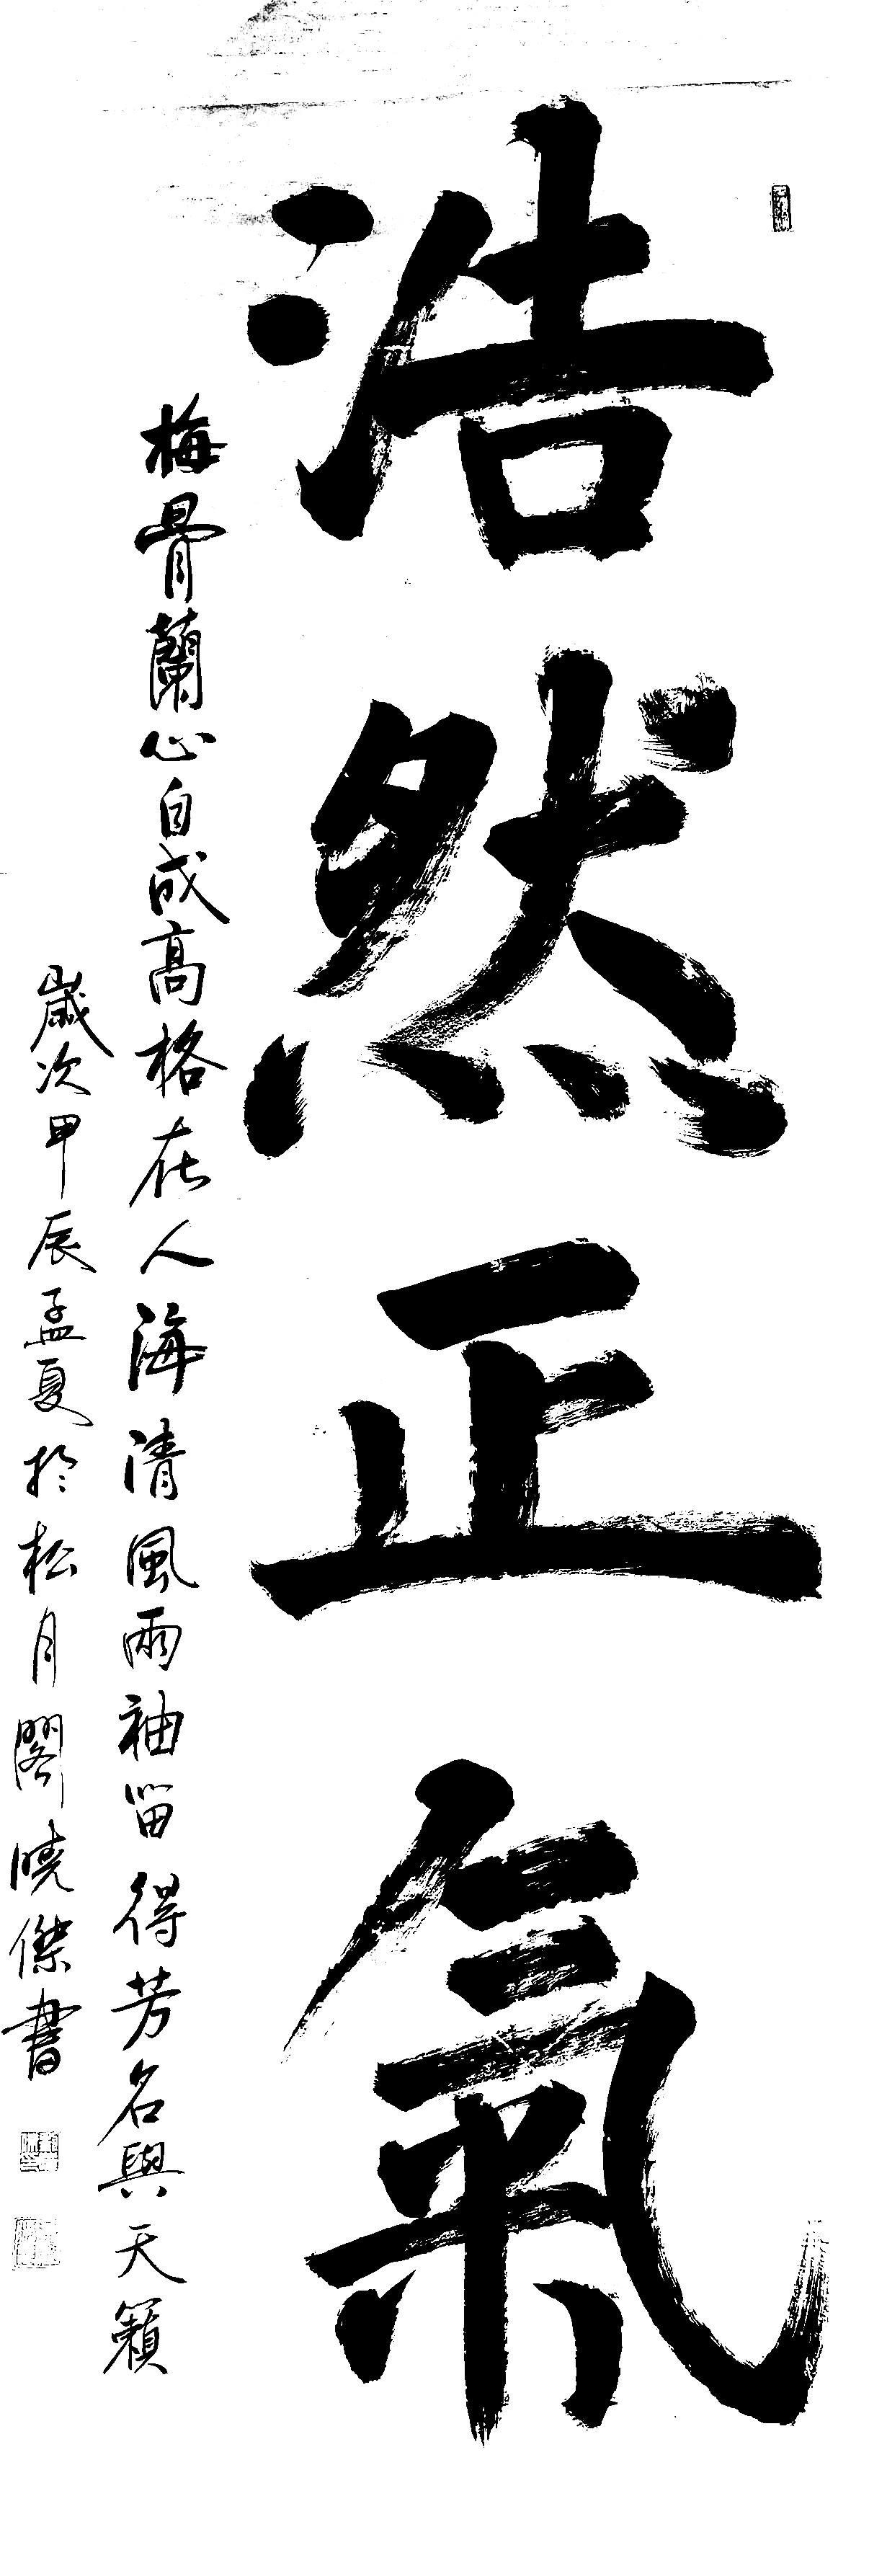 浩然正氣
梅骨蘭心自成高格在人海清風兩袖留得芳名與天籟
歲次甲辰孟夏於松月閣曉傑書